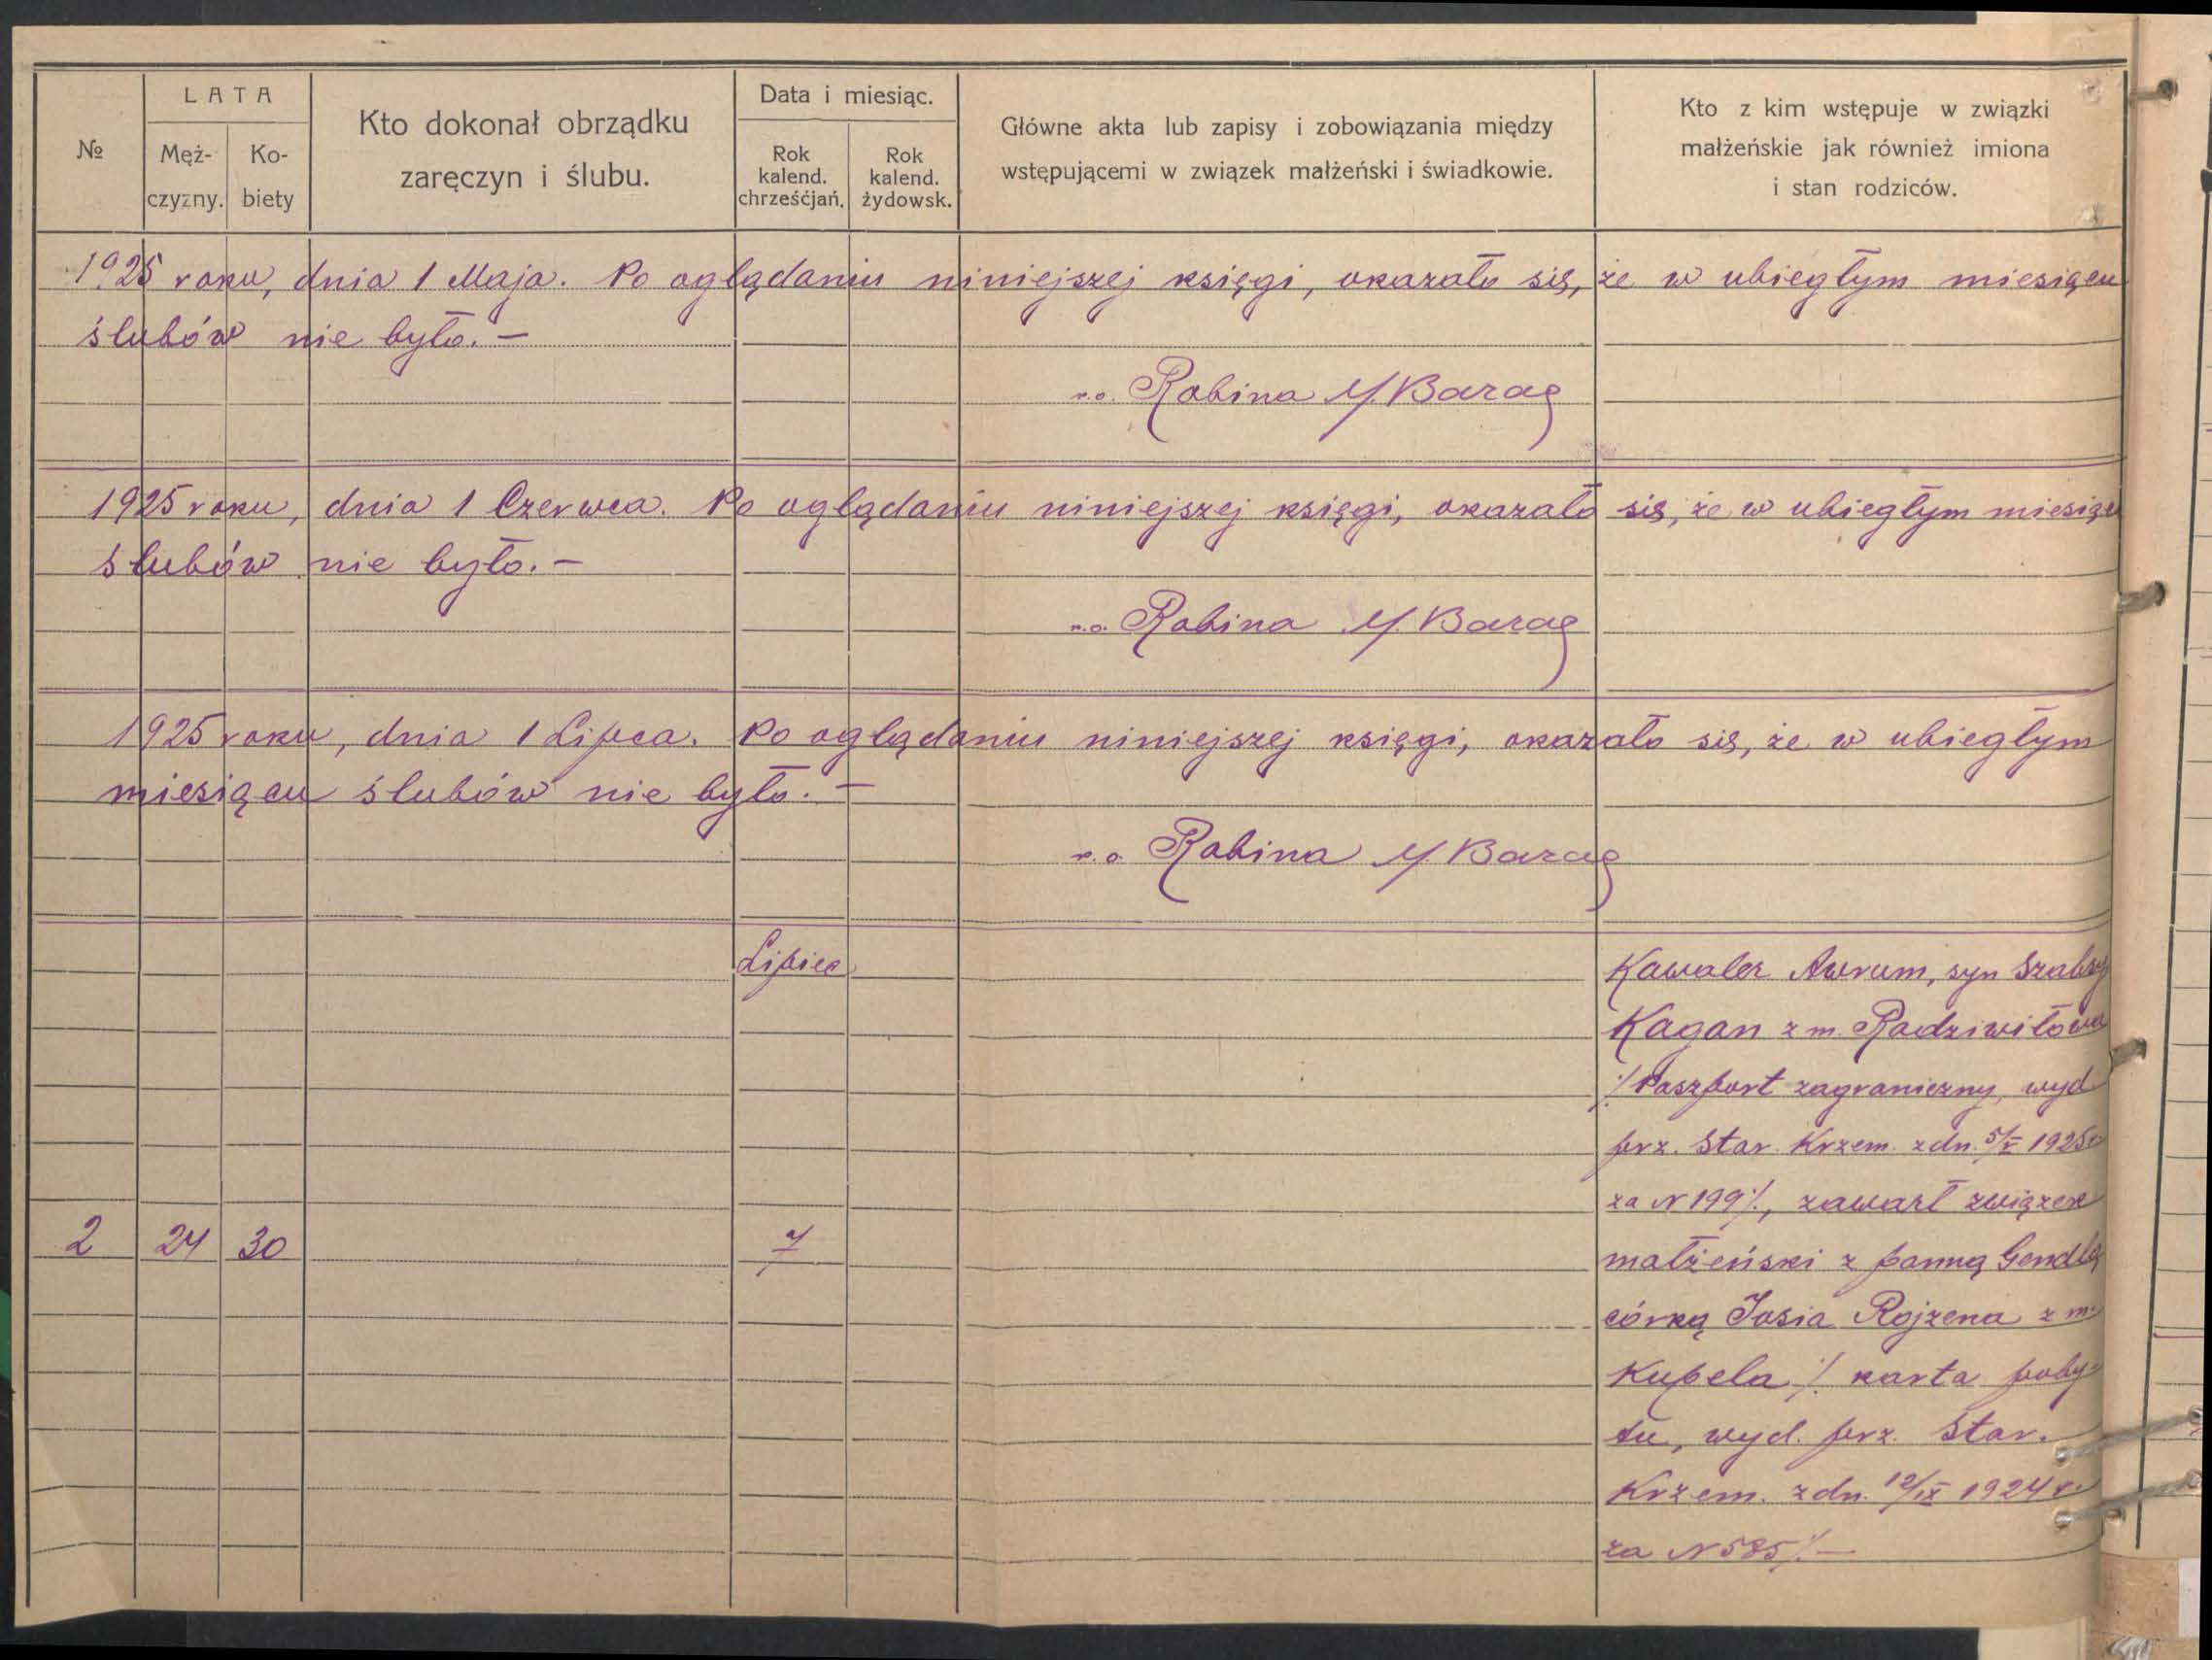 №
LATA
Męż-
czyzny.
Ko-
biety
Kto dokonał obrządku
zaręczyn i ślubu.
Data i miesiąc.
Rok
kalend.
chrześcjań.
Rok
kalend.
żydowsk.
Główne akta lub zapisy i zobowiązania między
wstępującemi w związek małżeński i świadkowie.
Kto z kim wstępuje w związki
małżeńskie jak również imiona
i stan rodziców.
1925 roku, dnia 1 Maja. Po oglądaniu niniejszej księgi, okazało się, że w ubiegłym miesiącu
ślubów nie było. —
Rabina M. Barag
1925 roku, dnia 1 Czerwca. Po oglądaniu niniejszej księgi, okazało się, że w ubiegłym miesiącu
ślubów nie było. —
Rabina M. Barag
1925 roku, dnia 1 Lipca. Po oglądaniu niniejszej księgi, okazało się, że w ubiegłym
miesiącu ślubów nie było. —
Rabina M. Barag
Lipiec
Kawaler Awrum, syn Szabsy
Kagan z m. Radziwiłowa
/Paszport zagraniczny, wyd
prz. Star. Krzem. z dn. 5/V 1925 r
za N 199/., zawarł związek
2 24 30 7 małżeński z panną Gendlą
córką Iosia Rojzena z m.
Kupela /. karta poby-
tu, wyd. prz. Star.
Krzem. z dn. 12/IX 1924 r.
za N 585/. —